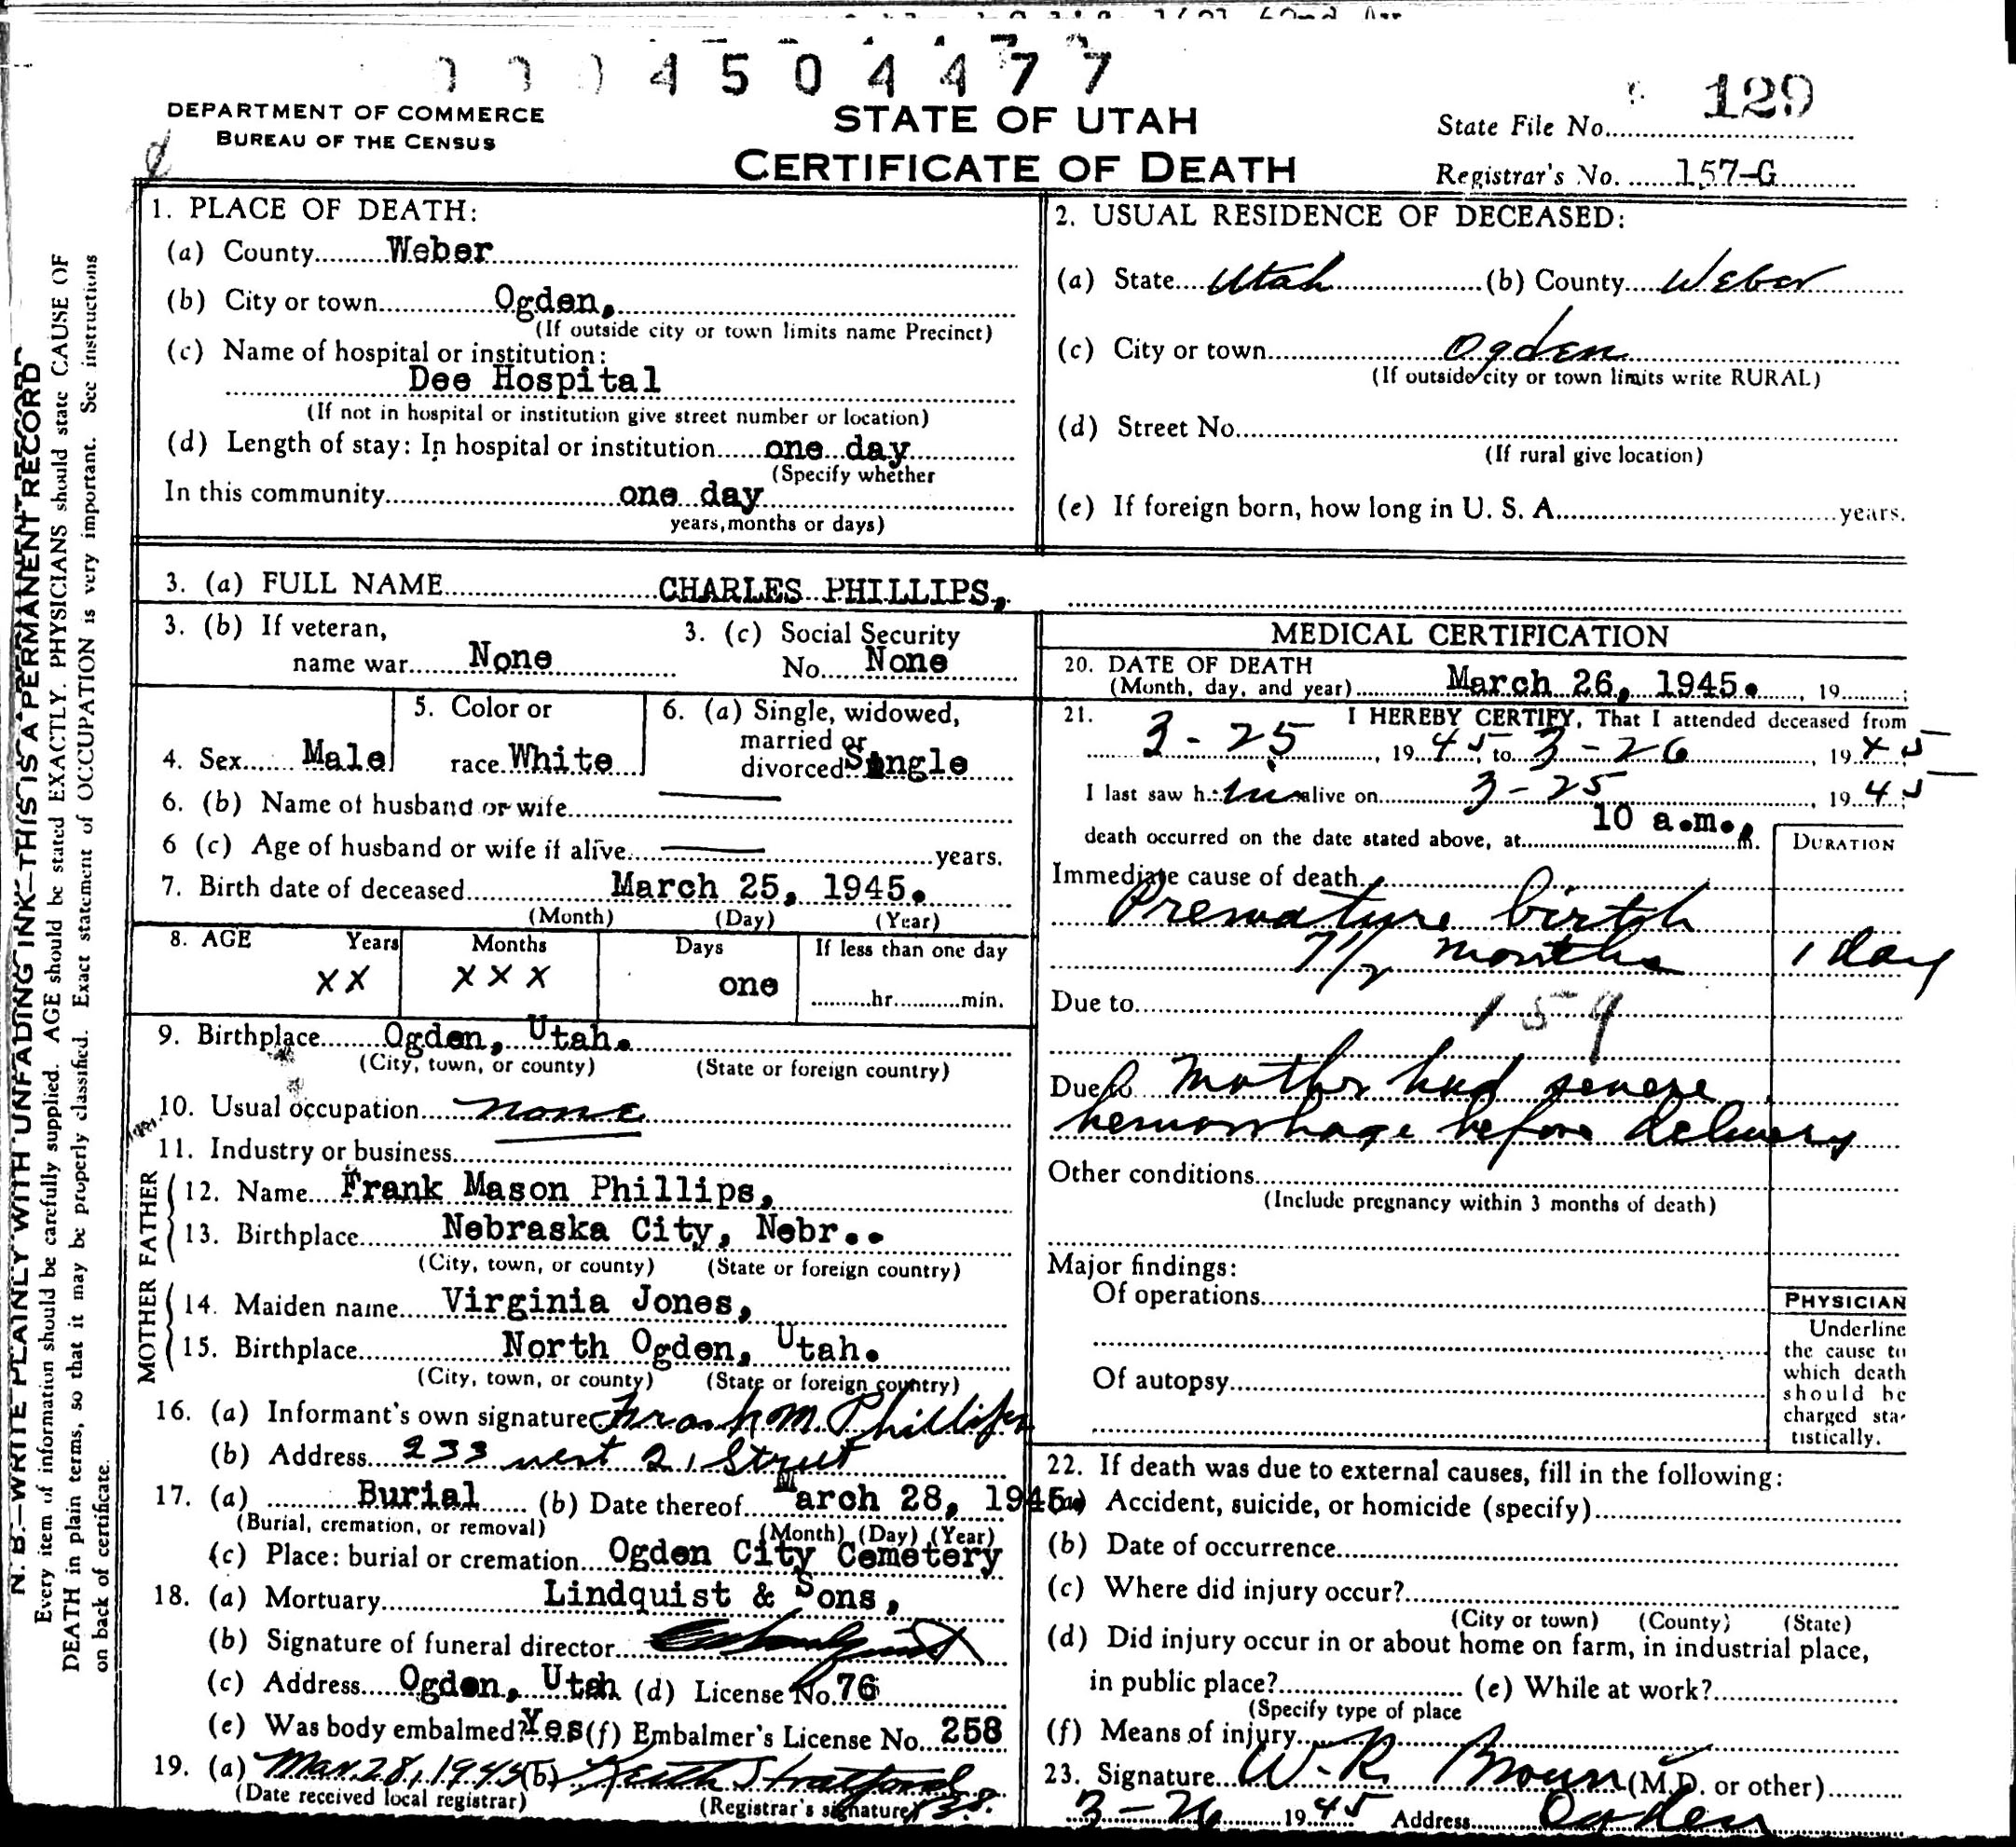 0 0 0 4 5 0 4 4 7 7
129
DEPARTMENT OF COMMERCE
BUREAU OF THE CENSUS
STATE OF UTAH
CERTIFICATE OF DEATH
State File No.
Registrar's No. 157-G
N. B.—WRITE PLAINLY WITH UNFADING INK—THIS IS A PERMANENT RECORD
Every item of information should be carefully supplied. AGE should be stated EXACTLY. PHYSICIANS should state CAUSE OF
DEATH in plain terms, so that it may be properly classified. Exact statement of OCCUPATION is very important. See instructions
on back of certificate.
1. PLACE OF DEATH:
(a) County Weber
(b) City or town Ogden,
(If outside city or town limits name Precinct)
(c) Name of hospital or institution:
Dee Hospital
(If not in hospital or institution give street number or location)
(d) Length of stay: In hospital or institution one day
(Specify whether
In this community one day
years, months or days)
2. USUAL RESIDENCE OF DECEASED:
(a) State Utah (b) County Weber
(c) City or town Ogden
(If outside city or town limits write RURAL)
(d) Street No.
(If rural give location)
(e) If foreign born, how long in U. S. A. years.
3. (a) FULL NAME CHARLES PHILLIPS,
3. (b) If veteran,
name war None
3. (c) Social Security
No. None
4. Sex Male
5. Color or
race White
6. (a) Single, widowed,
married or
divorced Single
6. (b) Name of husband or wife
6 (c) Age of husband or wife if alive years.
7. Birth date of deceased March 25, 1945.
(Month) (Day) (Year)
8. AGE Years Months Days If less than one day
XX XXX one hr. min.
9. Birthplace Ogden, Utah.
(City, town, or county) (State or foreign country)
10. Usual occupation none
11. Industry or business
FATHER
12. Name Frank Mason Phillips,
13. Birthplace Nebraska City, Nebr..
(City, town, or county) (State or foreign country)
MOTHER
14. Maiden name Virginia Jones,
15. Birthplace North Ogden, Utah.
(City, town, or county) (State or foreign country)
16. (a) Informant's own signature Frank M. Phillips
(b) Address 233 west 21 Street
17. (a) Burial (b) Date thereof March 28, 1945.
(Burial, cremation, or removal) (Month) (Day) (Year)
(c) Place: burial or cremation Ogden City Cemetery
18. (a) Mortuary Lindquist & Sons,
(b) Signature of funeral director
(c) Address Ogden, Utah (d) License No. 76
(e) Was body embalmed? Yes (f) Embalmer's License No. 258
19. (a) Mar. 28, 1945 (b) Keith Stratford
(Date received local registrar) (Registrar's signature)
MEDICAL CERTIFICATION
20. DATE OF DEATH
(Month, day, and year) March 26, 1945. , 19 ;
21. I HEREBY CERTIFY, That I attended deceased from
3-25, 1945, to 3-26, 1945
I last saw him alive on 3-25, 1945;
death occurred on the date stated above, at 10 a.m., m.
DURATION
Immediate cause of death
Premature birth
7 1/2 months 1 day
Due to 159
Due to Mother had severe
hemorrhage before delivery
Other conditions
(Include pregnancy within 3 months of death)
Major findings:
Of operations
Of autopsy
PHYSICIAN
Underline
the cause to
which death
should be
charged sta-
tistically.
22. If death was due to external causes, fill in the following:
(a) Accident, suicide, or homicide (specify)
(b) Date of occurrence
(c) Where did injury occur?
(City or town) (County) (State)
(d) Did injury occur in or about home on farm, in industrial place,
in public place? (e) While at work?
(Specify type of place
(f) Means of injury
23. Signature W. R. Brown (M.D. or other)
3-26 1945 Address Ogden